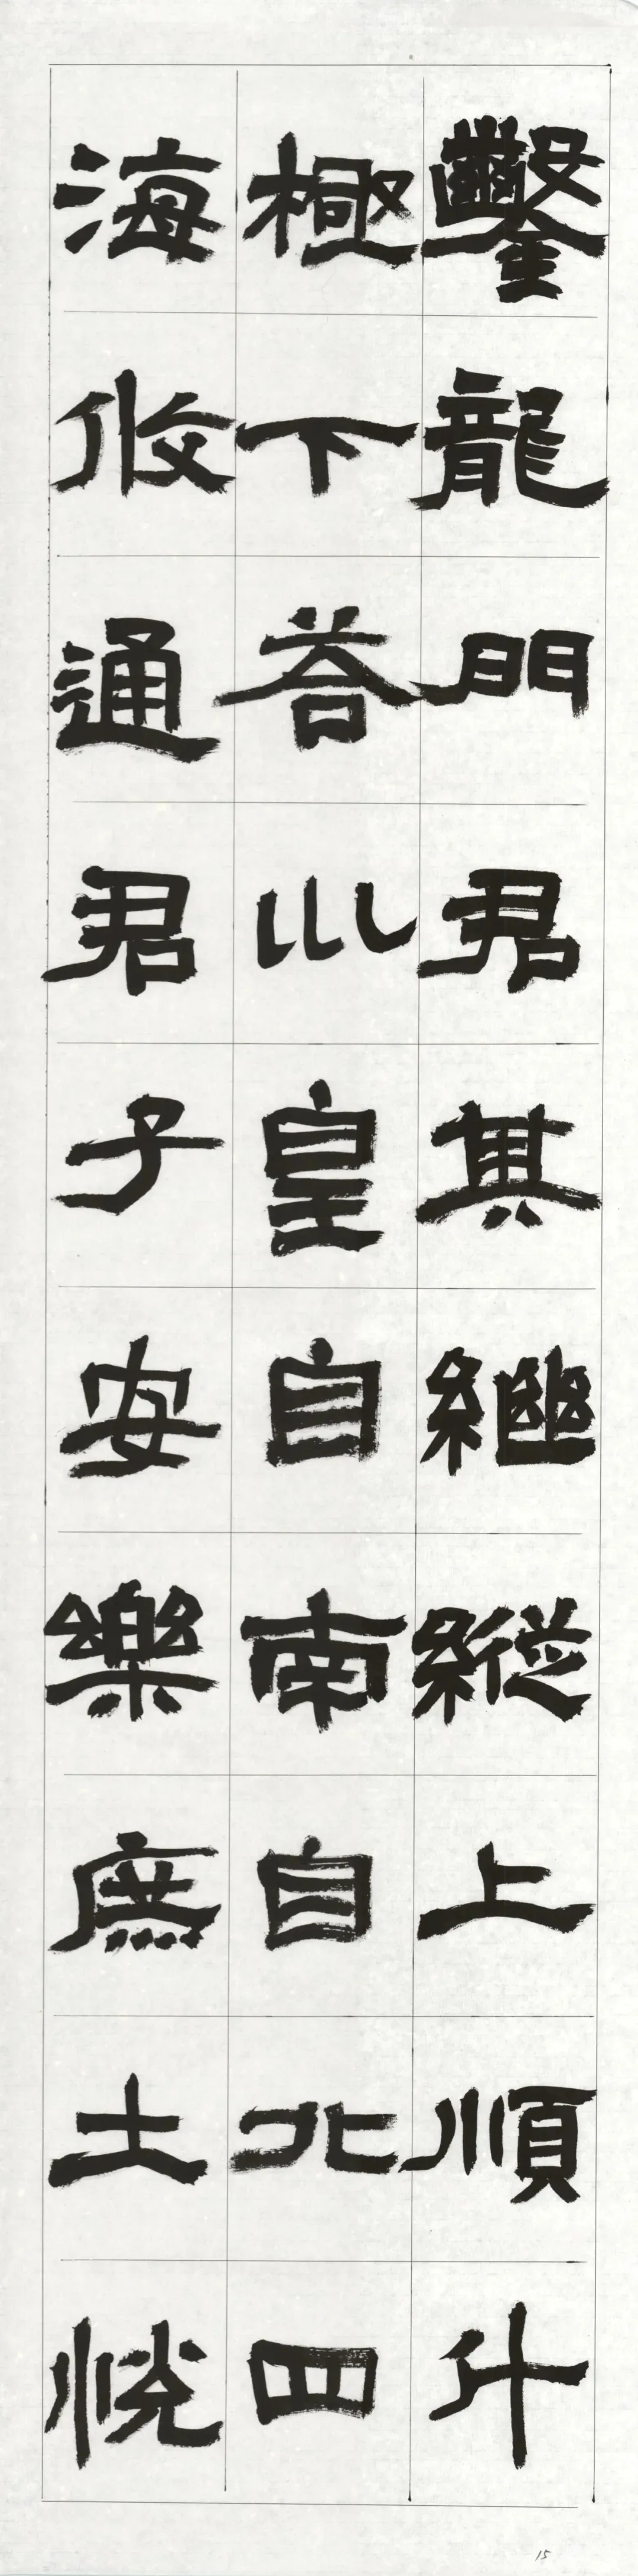 鑿龍門君其繼縱上順斗
極下荅巛皇自南自北四
海攸通君子安樂庶士悦
15